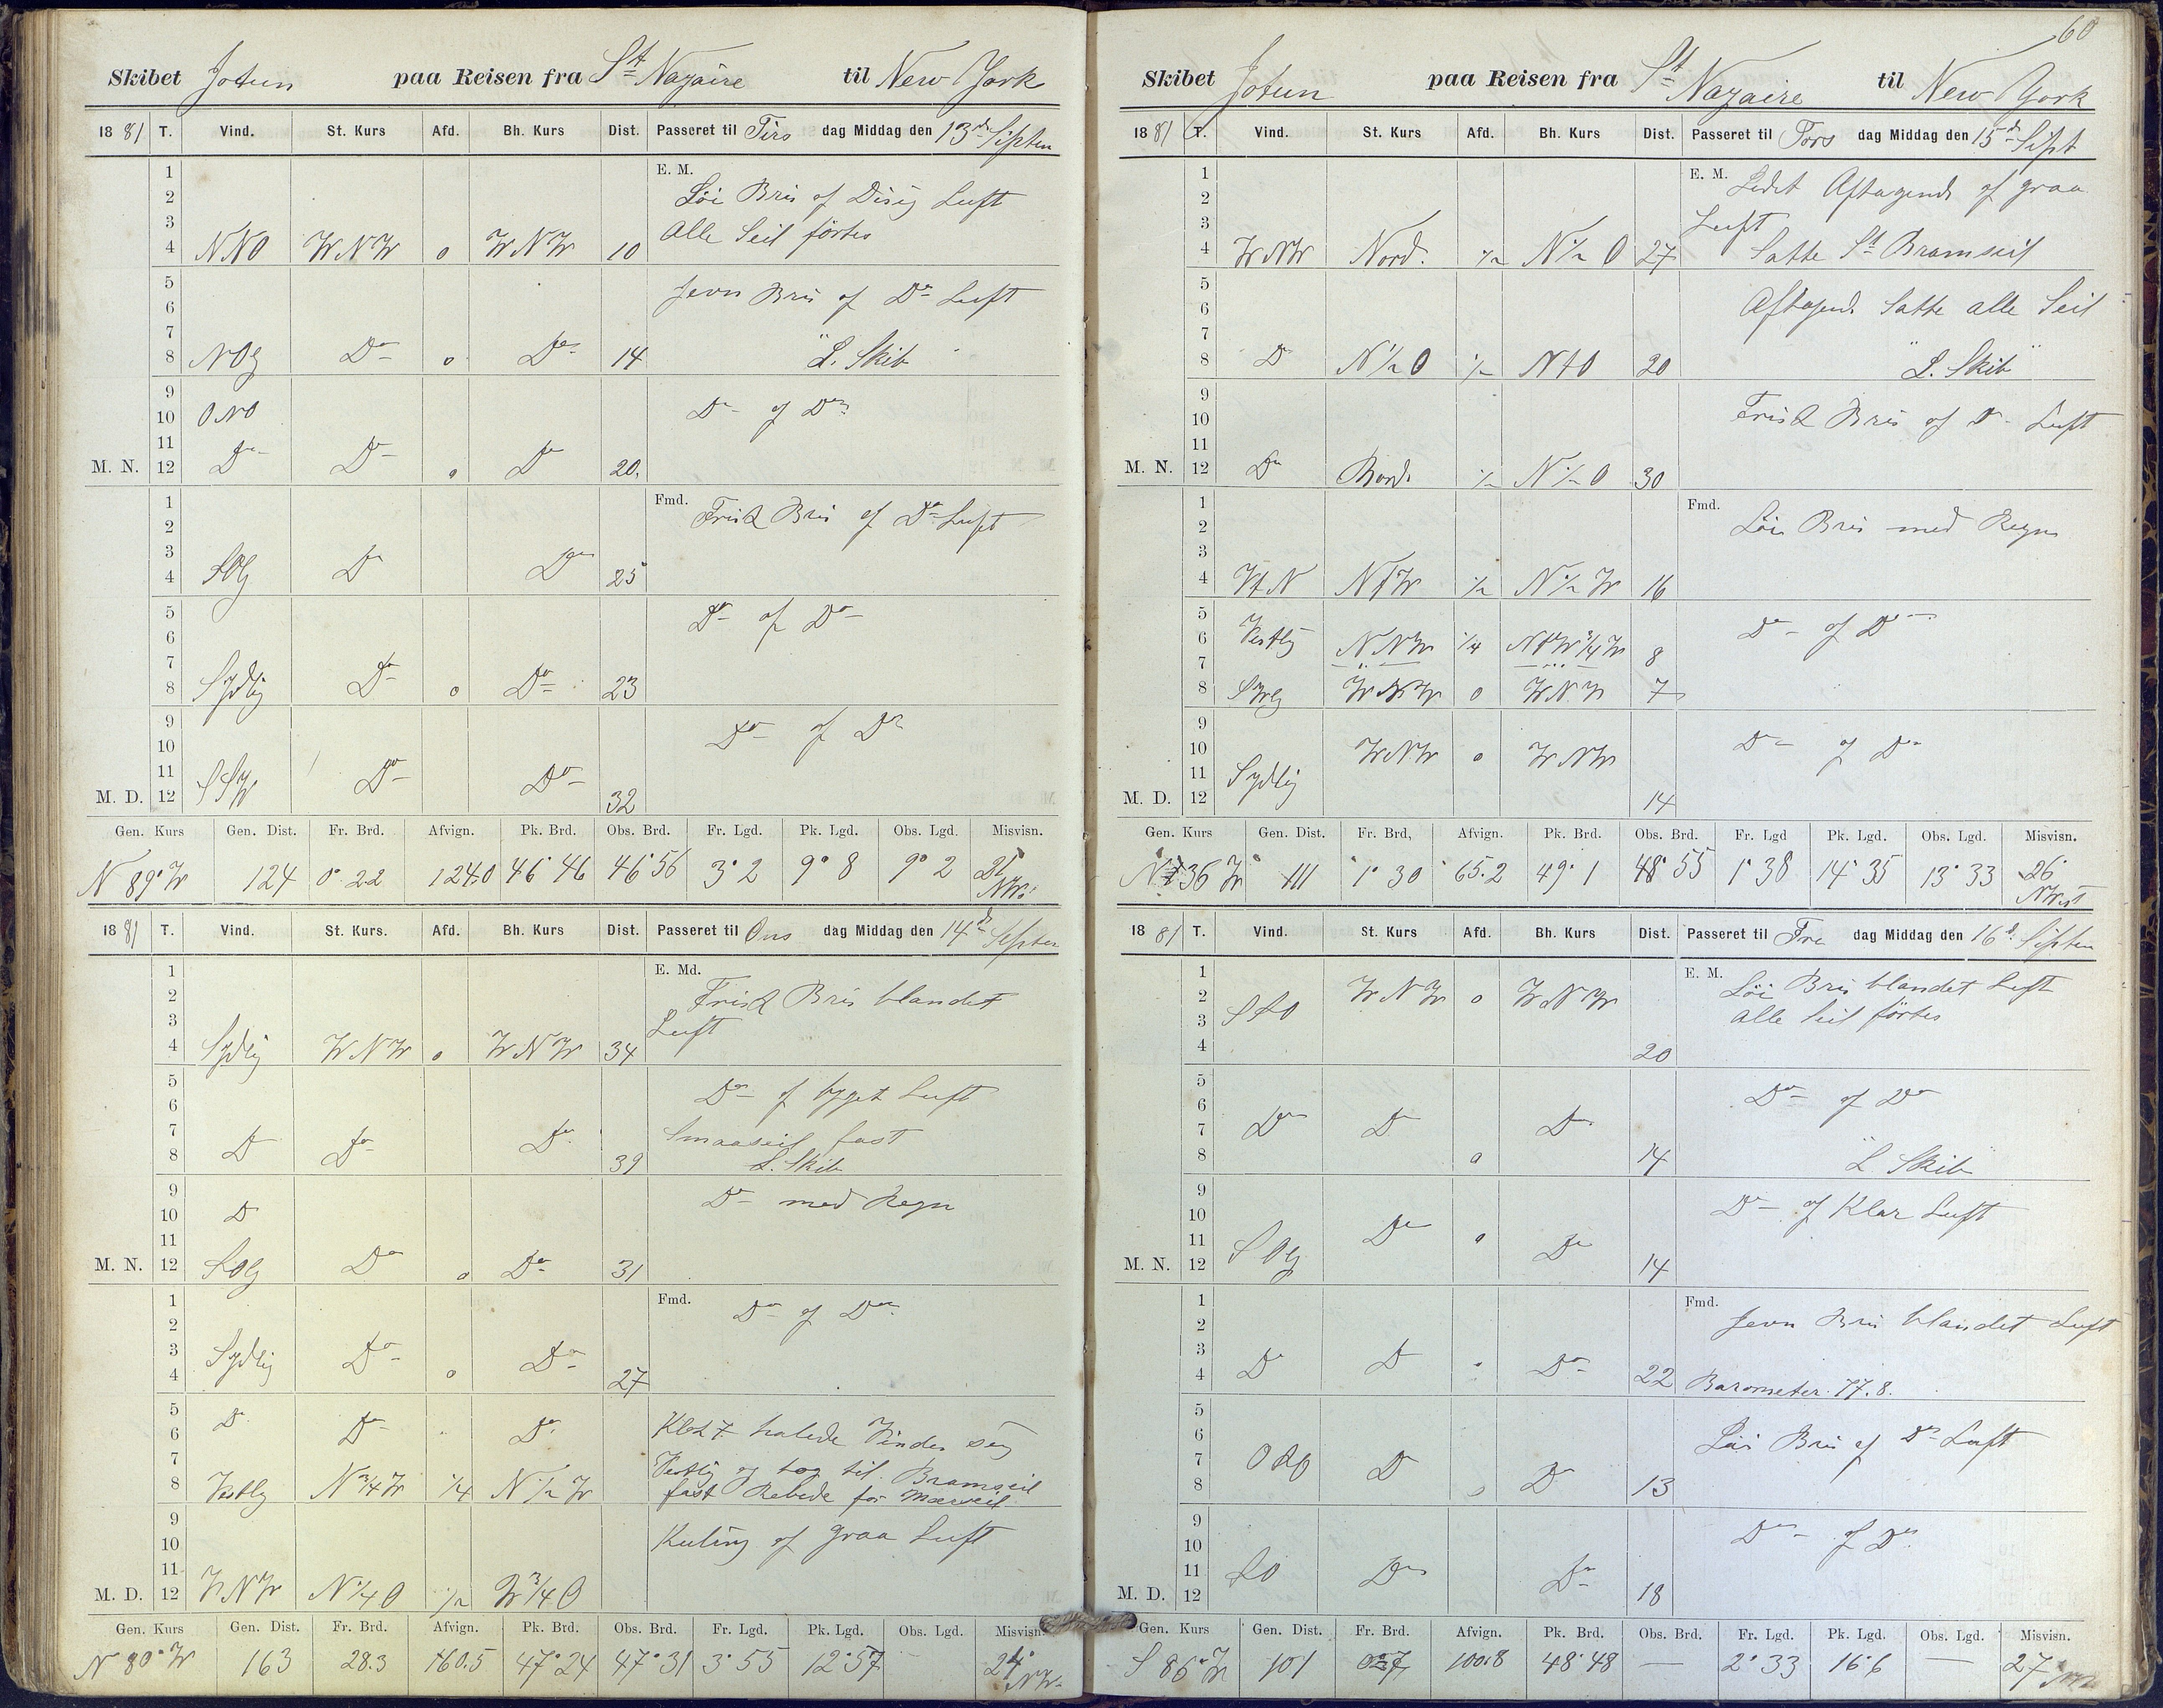 Skibet Jotun paa Reisen fra St Nazaire til New York
1881 T. Vind. St. Kurs Afd. Bh. Kurs Dist. Passeret til Tirs dag Middag den 13de Septem
1 E. M.
2 Löi Bris og Disig Luft
3 Alle Seil førtes
4 NNO WNW 0 WNW 10
5 Jevn Bris og Do Luft
6
7
8 NOlg Do 0 Do 14 "L. Skib"
9
10 ONO Do og Do
11
M. N. 12 Do Do 0 Do 20.
1 Fmd. Frisk Bris og Do Luft
2
3
4 SOlg Do Do 25
5 Do og Do
6
7
8 Sydlig Do 0 Do 23
9
10 Do og Do
11
M. D. 12 SSW Do Do 32
Gen. Kurs Gen. Dist. Fr. Brd. Afvign. Pk. Brd. Obs. Brd. Fr. Lgd. Pk. Lgd. Obs. Lgd. Misvisn.
N 89° W 124 0° 22 124.0 46° 46 46° 56 3° 2 9° 8 9° 2
1881 T. Vind. St. Kurs. Afd. Bh. Kurs Dist. Passeret til Ons dag Middag den 14de Septem
1 E. Md.
2 Frisk Bris blandet
3 Luft
4 Sydlig WNW 0 WNW 34
5 Do og byget Luft
6
7 Smaaseil fast
8 Do Do Do 39 L. Skib
9 Do med Regn
10 Do
11
M. N. 12 SOlg Do 0 Do 31
1 Fmd. Do og Do
2
3
4 Sydlig Do 0 Do 27
5
6 Do Do Do Klok 7 halede Vinden sig
7 Vestlig og tog til. Bramseil
8 Vestlig N 3/4 W 1/4 N 1/2 W fast Rebede for Mærseil
9
10 Kuling og graa Luft
11
M. D. 12 WNW N 1/4 O 1/2 3/4 O
Gen. Kurs Gen. Dist. Fr. Brd. Afvign. Pk. Brd. Obs. Brd. Fr. Lgd. Pk. Lgd. Obs. Lgd. Misvisn.
N 80° W 163 28.3 160.5 47° 24 47° 31 3° 55 12° 57 — 24° NW
60
Skibet Jotun paa Reisen fra St Nazaire til New York
1881 T. Vind. St. Kurs Afd. Bh. Kurs Dist. Passeret til Tors dag Middag den 15de Sept
1 E. M. Aftagende og graa
2
3 Luft
4 WNW Nord. 1/2 N 1/2 O 27 Satte St Bramseil
5
6 Aftagend. Satte alle Seil
7
8 Do N 1/2 O 1/2 NtO 20 "L. Skib"
9
10 Frisk Bris og Do Luft
11
M. N. 12 Do Nord. 1/2 N 1/2 O 30
1 Fmd.
2 Löi Bris med Regn
3
4 WtN NtW 1/2 N 1/2 W 16
5
6 Vestlig NNW 1/4 NtW 3/4 W 8 Do og Do
7
8 SWlg WNW 0 WNW 7
9
10 WNW 0 WNW Do og Do
11 Sydlig
M. D. 12 14
Gen. Kurs Gen. Dist. Fr. Brd, Afvign. Pk. Brd. Obs. Brd. Fr. Lgd Pk. Lgd. Obs. Lgd. Misvisn.
N 36 W 111 1° 30 65.2 49° 1 48° 55 1° 38 14° 35 13° 33 26° NWst
1881 T. Vind. St. Kurs Afd. Bh. Kurs Dist. Passeret til Fre dag Middag den 16d. Septem
1 E. M. Löi Bris blandet Luft
2 WNW 0 WNW Alle Seil førtes
3 SSO
4 20
5 Do og Do
6
7 Do Do Do
8 0 14 "L Skib"
9
10 Do 0 Do og Klar Luft
11
M. N. 12 SOlg Do 14
1 Fmd.
2 Jevn Bris blandet Luft
3
4 Do Do 0 Do 22 Barometer. 77.8.
5
6 Löi Bris og Do Luft
7
8 OSO Do 0 Do 13
9
10 Do og Do
11
M. D. 12 SO Do Do 18
Gen. Kurs Gen. Dist. Fr. Brd. Afvign. Pk. Brd. Obs. Brd. Fr. Lgd. Pk. Lgd. Obs. Lgd. Misvisn.
S 86° W 101 100.8 48° 48 — 2° 33 16° 6 — 27°